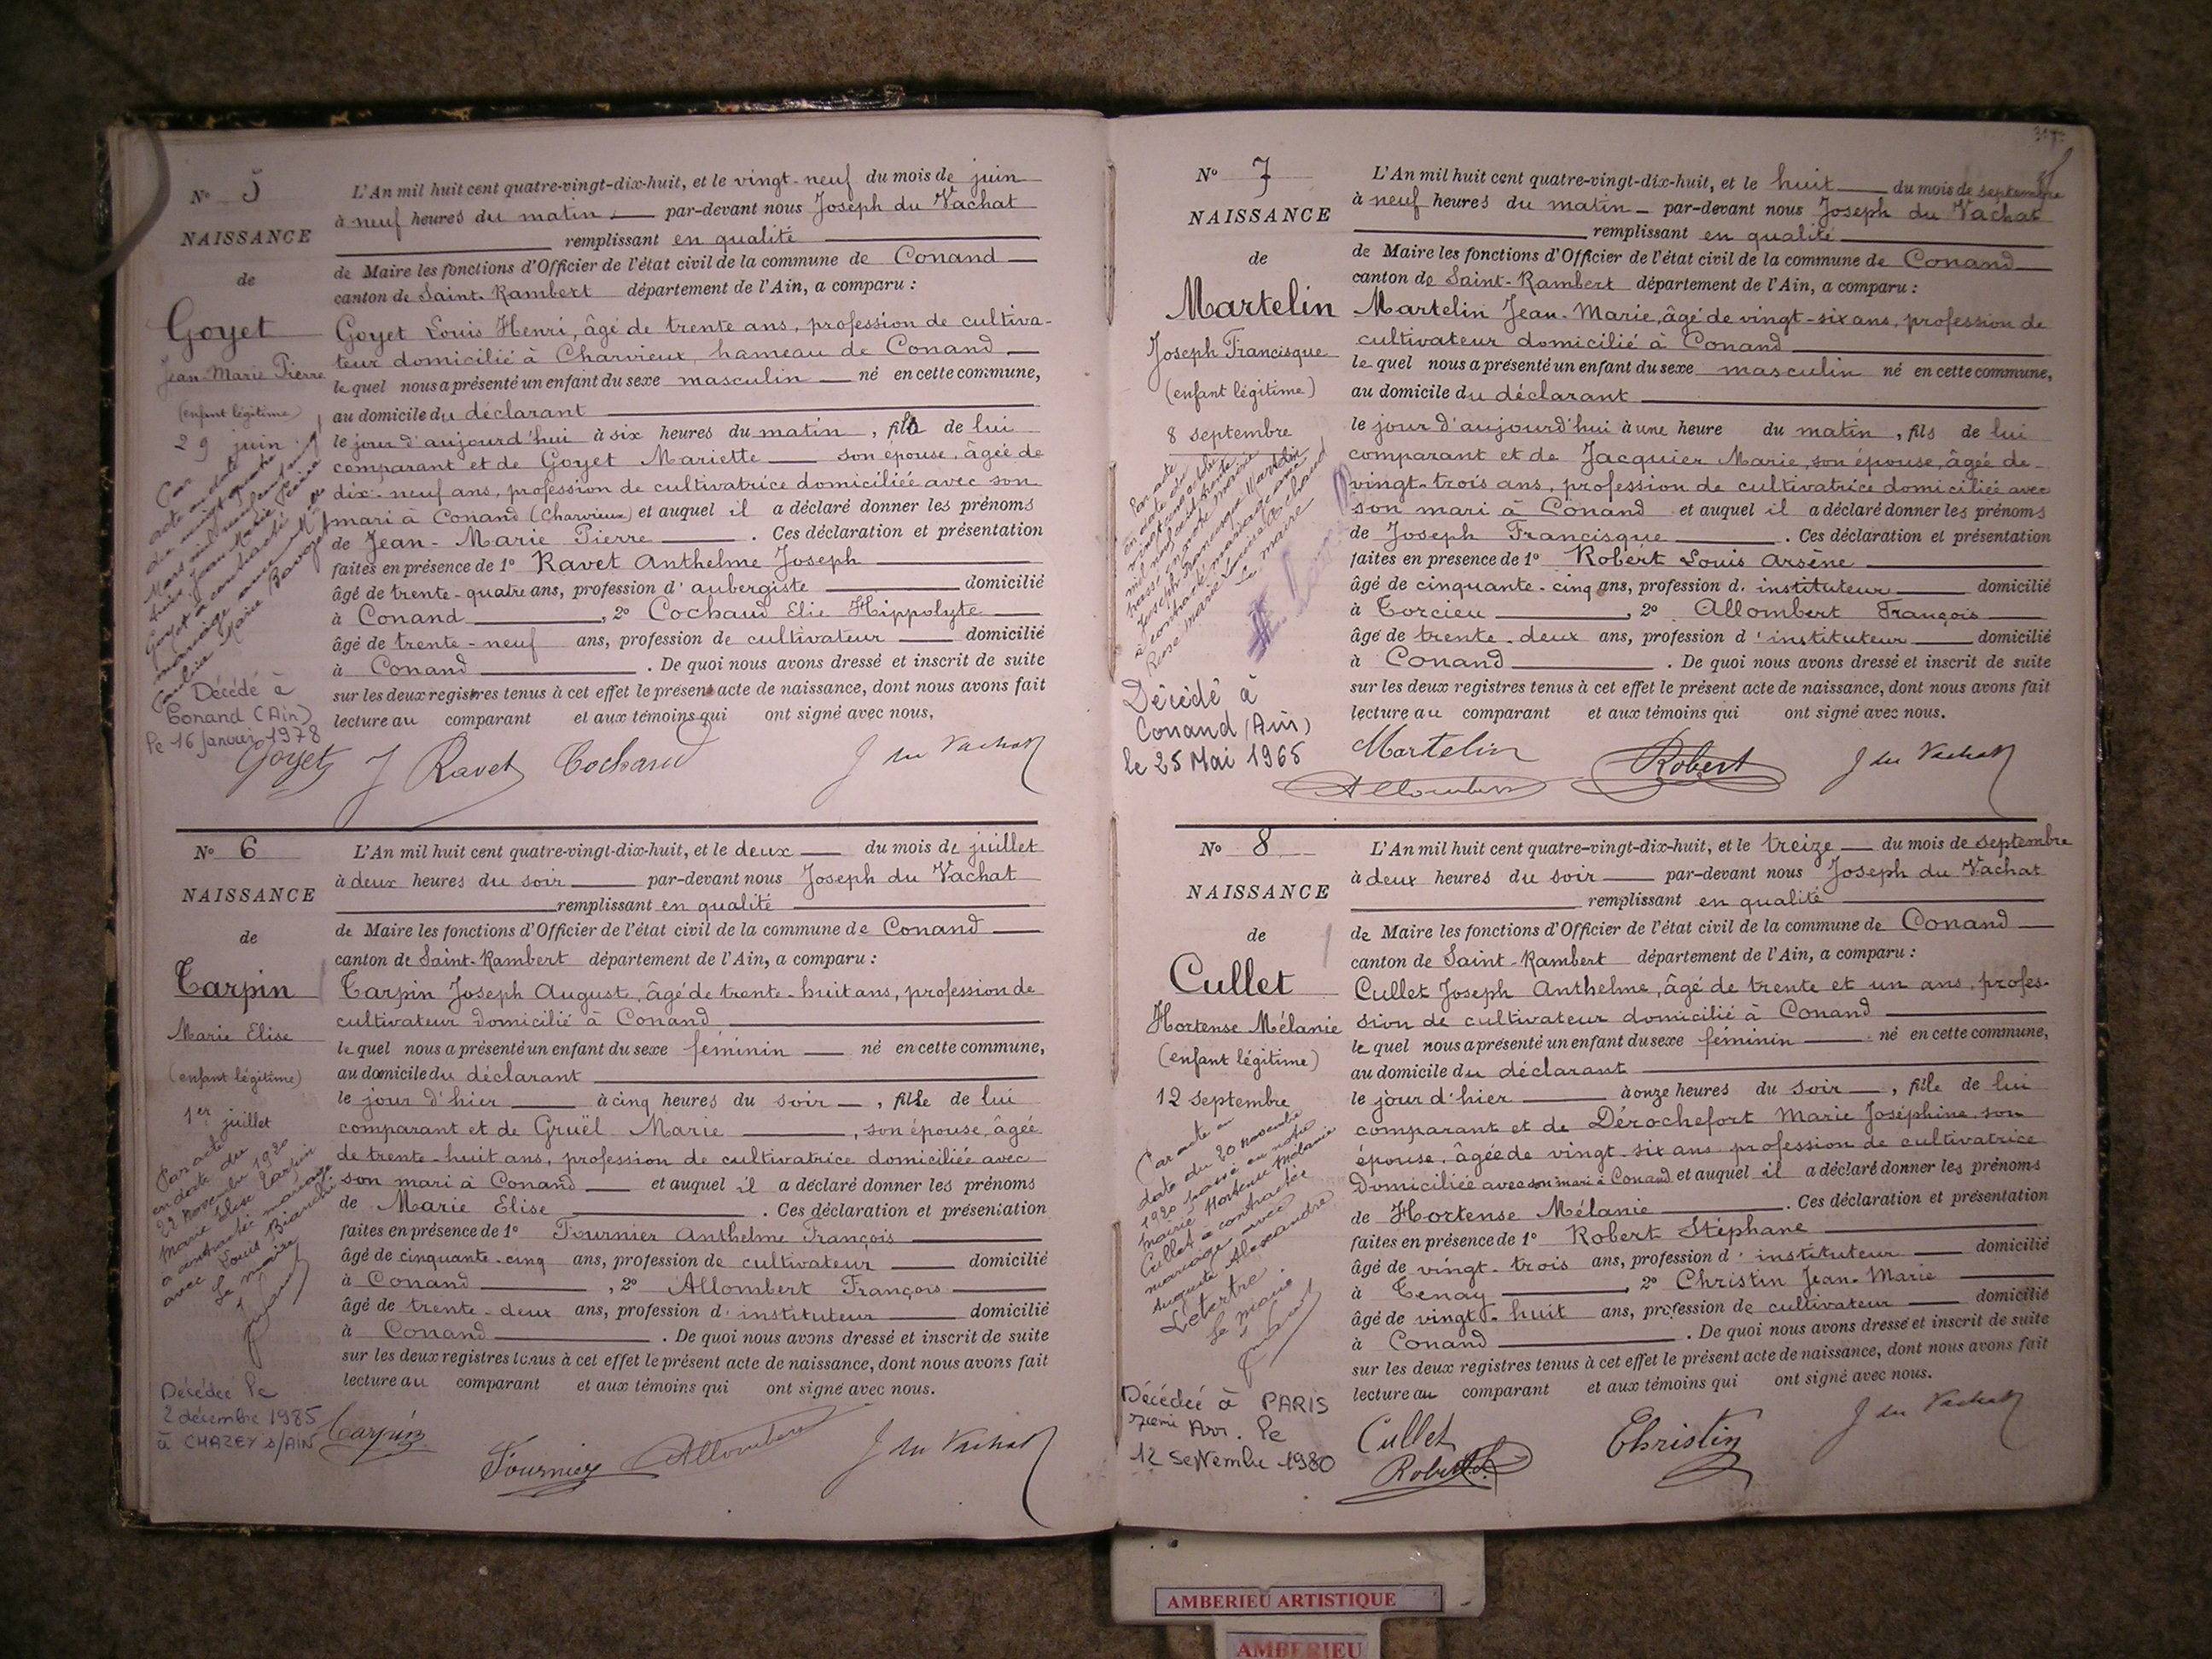 N° 5
NAISSANCE
de
Goyet
Jean-Marie Pierre
(enfant légitime)
29 juin
Par
acte en date
du vingt quatre
Mars mil neuf cent
Jean Marie Pierre
Goyet a contracté
mariage avec Mlle
Marie
Décédé à
Conand (Ain)
le 16 janvier 1978
L'An mil huit cent quatre-vingt-dix-huit, et le vingt-neuf du mois de juin
à neuf heures du matin par-devant nous Joseph du Vachat
remplissant en qualité
de Maire les fonctions d'Officier de l'état civil de la commune de Conand
canton de Saint-Rambert département de l'Ain, a comparu :
Goyet Louis Henri, âgé de trente ans, profession de cultiva-
teur domicilié à Charvieux, hameau de Conand
lequel nous a présenté un enfant du sexe masculin né en cette commune,
au domicile du déclarant
le jour d'aujourd'hui à six heures du matin, fils de lui
comparant et de Goyet Mariette son épouse, âgée de
dix-neuf ans, profession de cultivatrice domiciliée avec son
mari à Conand (Charvieux) et auquel il a déclaré donner les prénoms
de Jean-Marie Pierre. Ces déclaration et présentation
faites en présence de 1° Ravet Anthelme Joseph
âgé de trente-quatre ans, profession d'aubergiste domicilié
à Conand, 2° Cochaud Elie Hippolyte
âgé de trente-neuf ans, profession de cultivateur domicilié
à Conand. De quoi nous avons dressé et inscrit de suite
sur les deux registres tenus à cet effet le présent acte de naissance, dont nous avons fait
lecture au comparant et aux témoins qui ont signé avec nous.
Goyet J Ravet Cochaud J du Vachat
N° 6
NAISSANCE
de
Tarpin
Marie Elise
(enfant légitime)
1er juillet
Par acte
en date du
22 novembre 1920
Marie Elise Tarpin
a contracté mariage
avec Louis Bianchi
Le maire
Décédée le
2 décembre 1985
à CHAZEY s/AIN
L'An mil huit cent quatre-vingt-dix-huit, et le deux du mois de juillet
à deux heures du soir par-devant nous Joseph du Vachat
remplissant en qualité
de Maire les fonctions d'Officier de l'état civil de la commune de Conand
canton de Saint-Rambert département de l'Ain, a comparu :
Tarpin Joseph Auguste, âgé de trente-huit ans, profession de
cultivateur domicilié à Conand
lequel nous a présenté un enfant du sexe féminin né en cette commune,
au domicile du déclarant
le jour d'hier à cinq heures du soir, fille de lui
comparant et de Gruël Marie, son épouse, âgée
de trente-huit ans, profession de cultivatrice domiciliée avec
son mari à Conand et auquel il a déclaré donner les prénoms
de Marie Elise. Ces déclaration et présentation
faites en présence de 1° Fournier Anthelme François
âgé de cinquante-cinq ans, profession de cultivateur domicilié
à Conand, 2° Allombert François
âgé de trente-deux ans, profession d'instituteur domicilié
à Conand. De quoi nous avons dressé et inscrit de suite
sur les deux registres tenus à cet effet le présent acte de naissance, dont nous avons fait
lecture au comparant et aux témoins qui ont signé avec nous.
Tarpin Fournier Allombert J du Vachat
N° 7
NAISSANCE
de
Martelin
Joseph Francisque
(enfant légitime)
8 septembre
Par acte
en date du
mil neuf cent
passé en notre mairie
Joseph Francisque Martelin
a contracté mariage avec
Rose Marie Louise Cochaud
Le maire
Décédé à
Conand (Ain)
le 25 Mai 1965
L'An mil huit cent quatre-vingt-dix-huit, et le huit du mois de septembre
à neuf heures du matin par-devant nous Joseph du Vachat
remplissant en qualité
de Maire les fonctions d'Officier de l'état civil de la commune de Conand
canton de Saint-Rambert département de l'Ain, a comparu :
Martelin Jean-Marie, âgé de vingt-six ans, profession de
cultivateur domicilié à Conand
lequel nous a présenté un enfant du sexe masculin né en cette commune,
au domicile du déclarant
le jour d'aujourd'hui à une heure du matin, fils de lui
comparant et de Jacquier Marie, son épouse, âgée de
vingt-trois ans, profession de cultivatrice domiciliée avec
son mari à Conand et auquel il a déclaré donner les prénoms
de Joseph Francisque. Ces déclaration et présentation
faites en presence de 1° Robert Louis Arsène
âgé de cinquante-cinq ans, profession d'instituteur domicilié
à Torcieu, 2° Allombert François
âgé de trente-deux ans, profession d'instituteur domicilié
à Conand. De quoi nous avons dressé et inscrit de suite
sur les deux registres tenus à cet effet le présent acte de naissance, dont nous avons fait
lecture au comparant et aux témoins qui ont signé avec nous.
Martelin Robert J du Vachat
Allombert
N° 8
NAISSANCE
de
Cullet
Hortense Mélanie
(enfant légitime)
12 septembre
Par acte en
date du 20 novembre
1920 passé en notre
mairie Hortense Mélanie
Cullet a contracté
mariage avec
Auguste Alexandre
Letertre
Le maire
Décédée à PARIS
Arr. le
12 Septembre 1980
L'An mil huit cent quatre-vingt-dix-huit, et le treize du mois de septembre
à deux heures du soir par-devant nous Joseph du Vachat
remplissant en qualité
de Maire les fonctions d'Officier de l'état civil de la commune de Conand
canton de Saint-Rambert département de l'Ain, a comparu :
Cullet Joseph Anthelme, âgé de trente et un ans, profes-
sion de cultivateur domicilié à Conand
lequel nous a présenté un enfant du sexe féminin né en cette commune,
au domicile du déclarant
le jour d'hier à onze heures du soir, fille de lui
comparant et de Dérochefort Marie Joséphine, son
épouse, âgée de vingt-six ans profession de cultivatrice
domiciliée avec son mari à Conand et auquel il a déclaré donner les prénoms
de Hortense Mélanie. Ces déclaration et présentation
faites en présence de 1° Robert Stéphane
âgé de vingt-trois ans, profession d'instituteur domicilié
à Tenay, 2° Christin Jean-Marie
âgé de vingt-huit ans, profession de cultivateur domicilié
à Conand. De quoi nous avons dressé et inscrit de suite
sur les deux registres tenus à cet effet le présent acte de naissance, dont nous avons fait
lecture au comparant et aux témoins qui ont signé avec nous.
Cullet Christin J du Vachat
Robert
AMBERIEU ARTISTIQUE
AMBERIEU